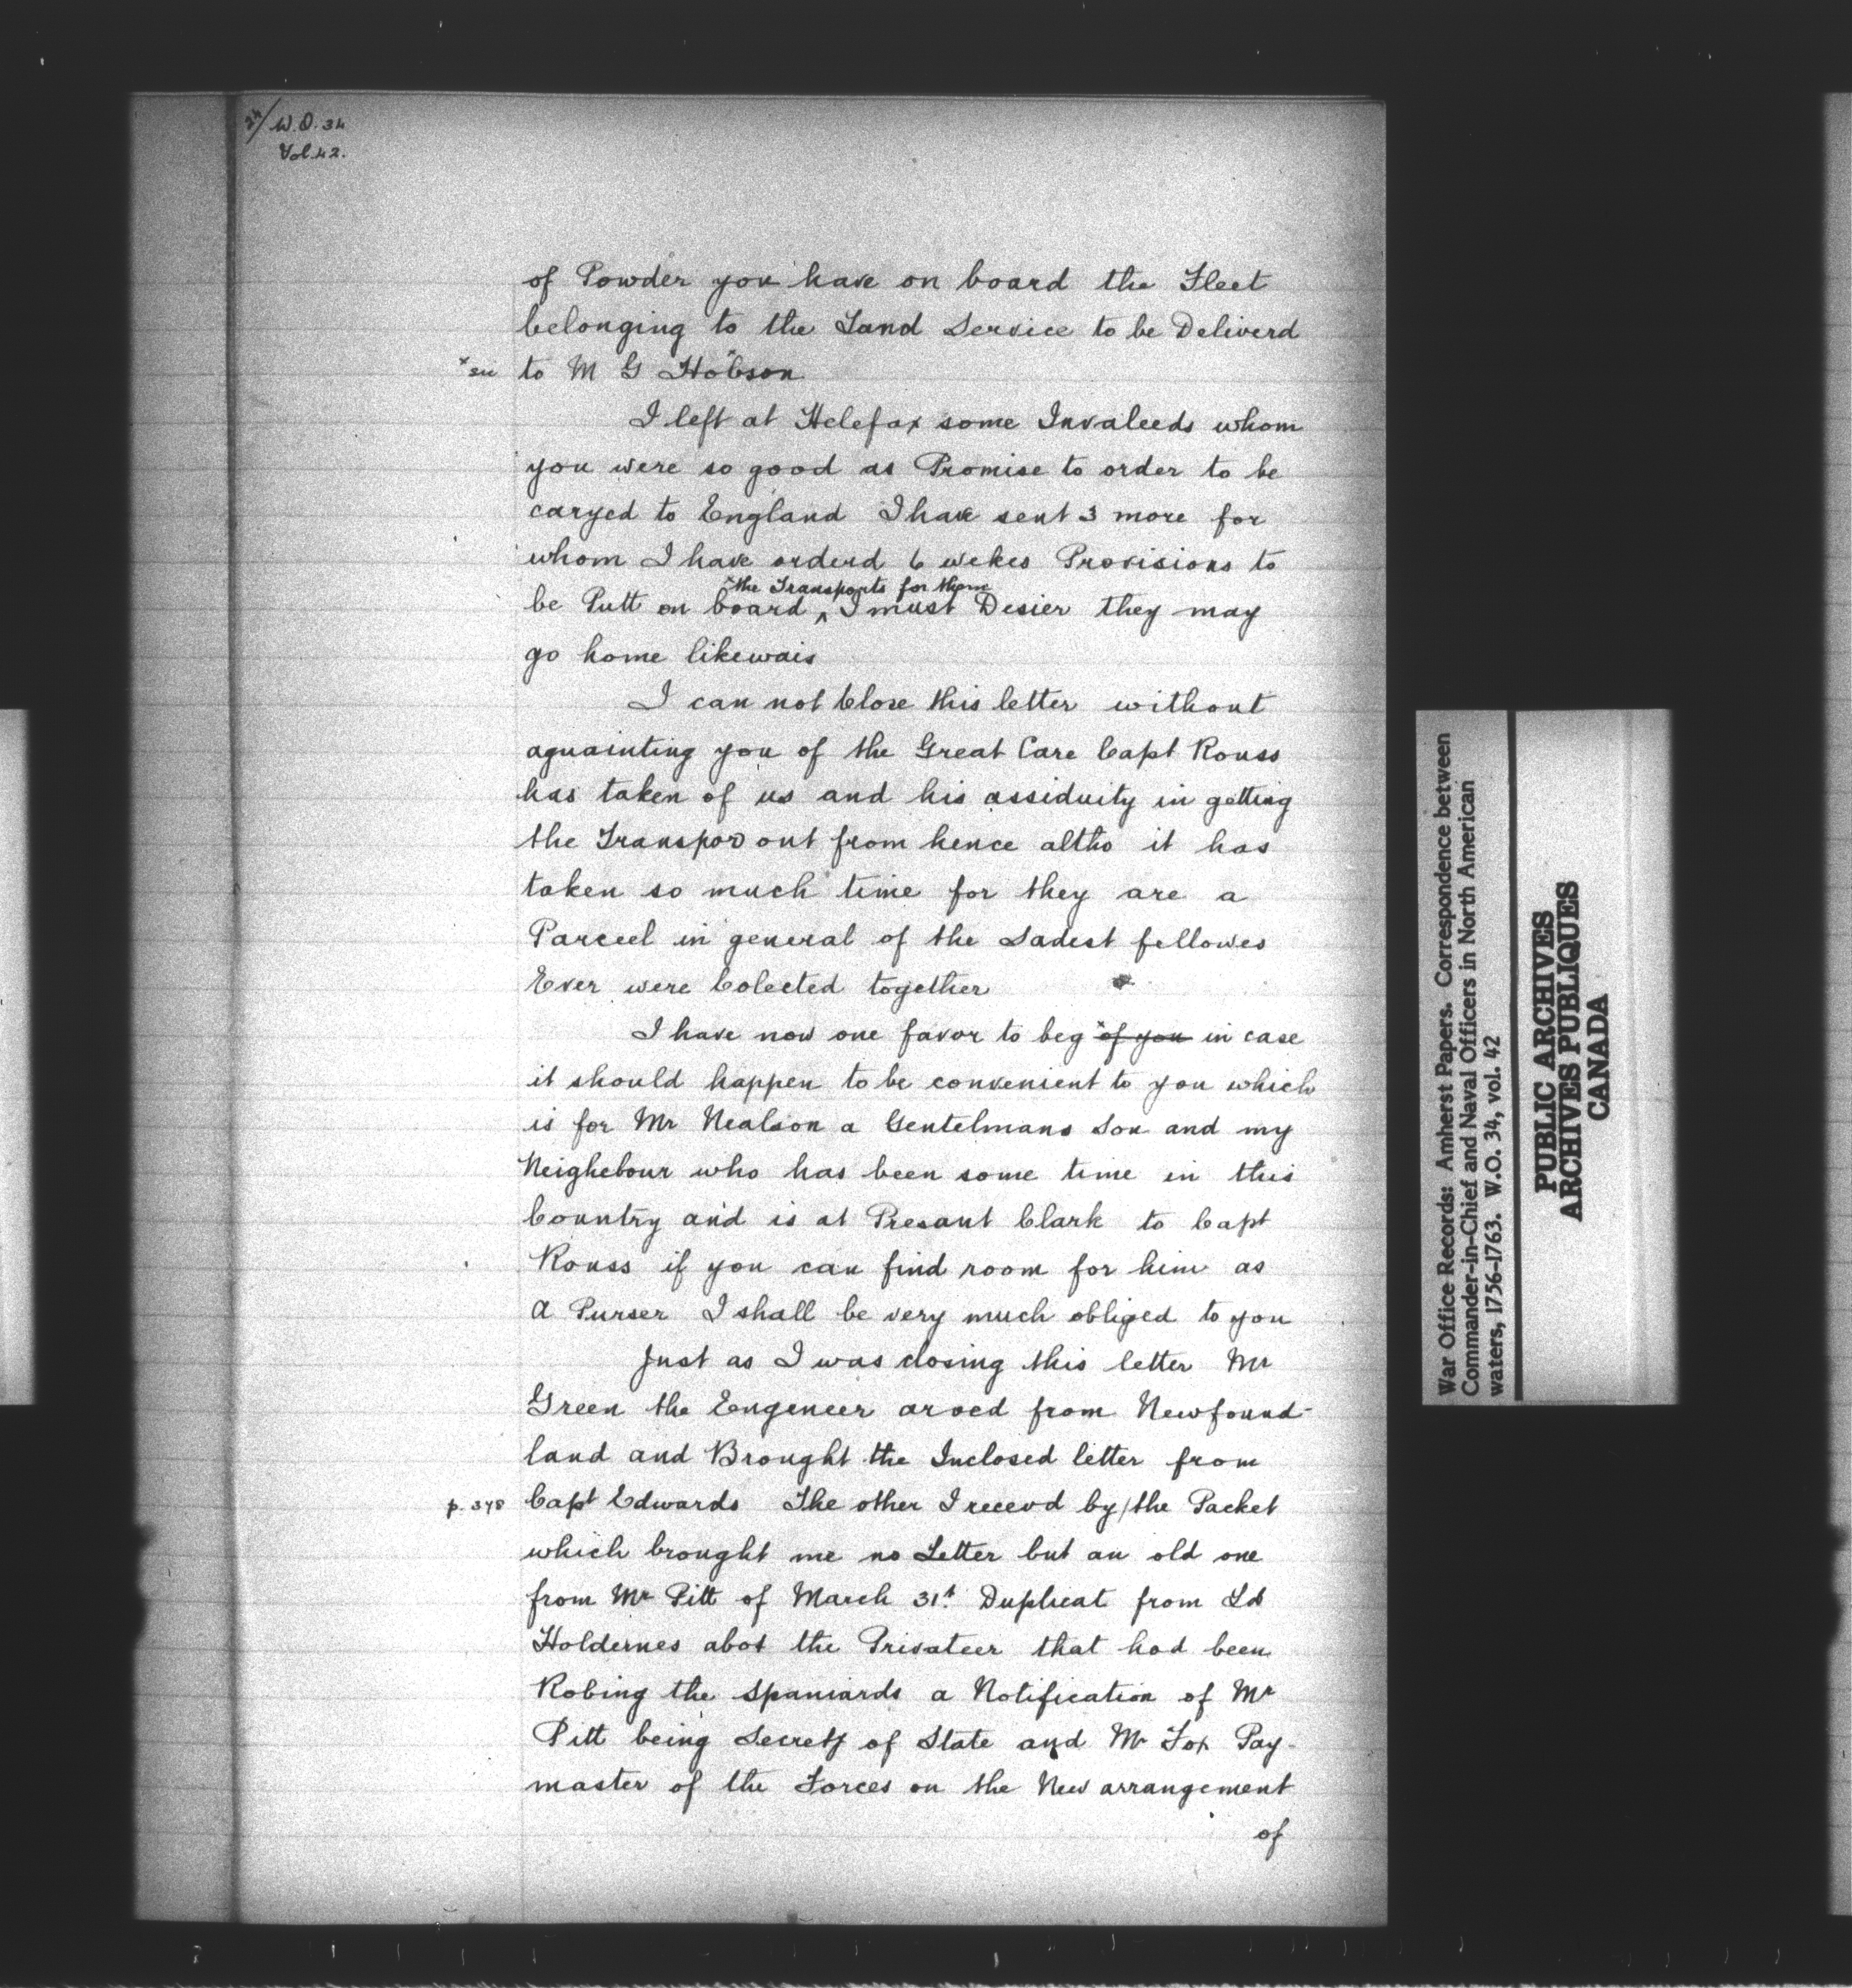 W.O. 34
Vol. 42.
of Powder you have on board the Fleet
belonging to the Land Service to be Deliverd
to M G Hobson
I left at Helefax some Invaleeds whom
you were so good as Promise to order to be
caryed to England I have sent 3 more for
whom I have orderd 6 wekes Provisions to
the Transports for them
be Putt on board ^ I must Desier they may
go home likewais
I can not Close this letter without
aquainting you of the Great Care Capt Rouss
has taken of us and his assiduity in getting
the Transpor out from hence altho it has
taken so much time for they are a
Parceel in general of the Sadest fellowes
Ever were Colected together
I have now one favor to beg of you in case
it should happen to be convenient to you which
is for Mr Nealson a Gentelmans Son and my
Neighebour who has been some time in this
Country and is at Presant Clark to Capt
Rouss if you can find room for him as
a Purser I shall be very much obliged to you
Just as I was closing this letter Mr
Green the Engeneer arved from Newfound-
land and Brought the Inclosed letter from
p. 378
Capt Edwards The other I receevd by/the Packet
which brought me no Letter but an old one
from Mr Pitt of March 31t. Duplicat from Ld
Holdernes abot the Privateer that had been
Robing the Spaniards a Notification of Mr
Pitt being Secrety of State and Mr Fox Pay-
master of the Forces on the New arrangement
of
War Office Records: Amherst Papers. Correspondence between
Commander-in-Chief and Naval Officers in North American
waters, 1756-1763. W.O. 34, vol. 42
PUBLIC ARCHIVES
ARCHIVES PUBLIQUES
CANADA